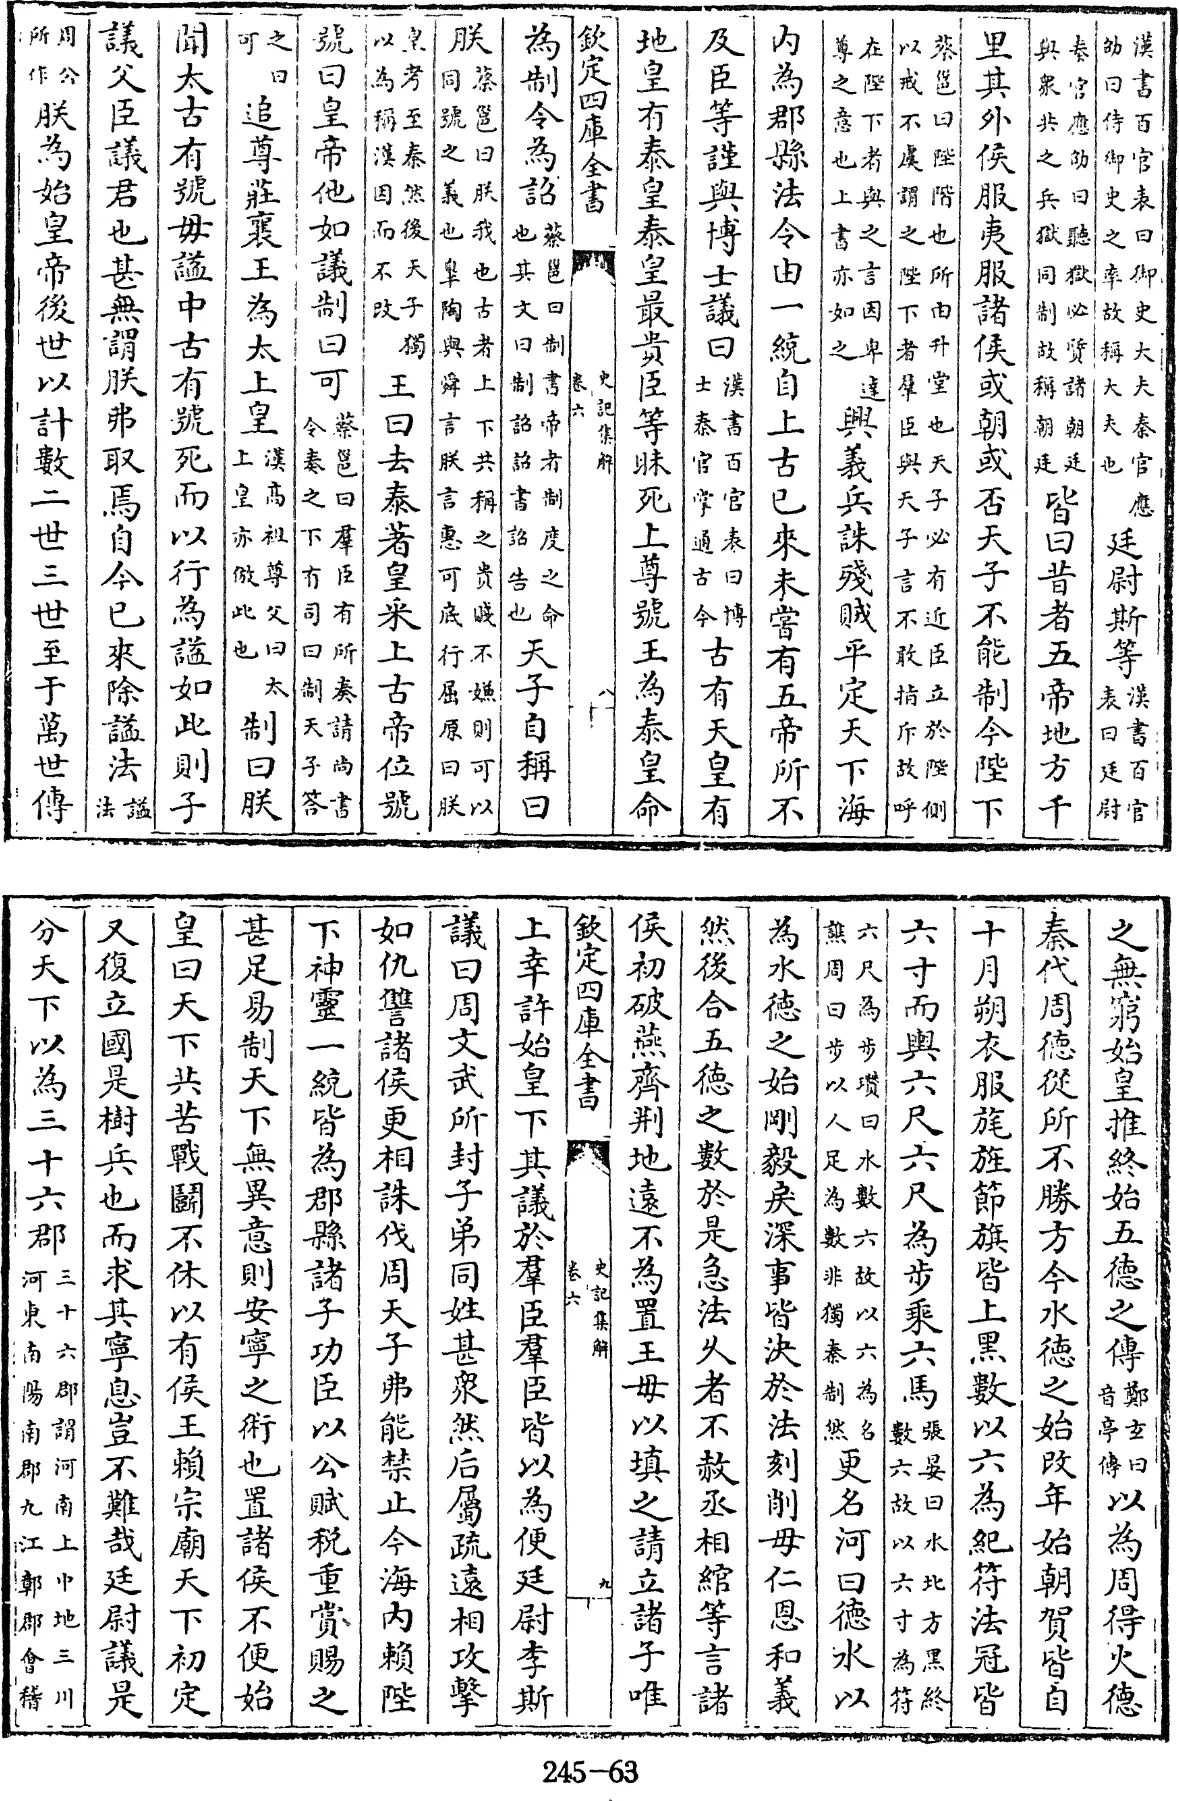 漢書百官表曰御史大夫秦官應劭曰侍御史之率故稱大夫也廷尉斯等漢書百官表曰廷尉
秦官應劭曰聽獄必質諸朝廷與衆共之兵獄同制故稱朝廷皆曰昔者五帝地方千
里其外侯服夷服諸侯或朝或否天子不能制今陛下
蔡邕曰陛階也所由升堂也天子必有近臣立於陛側以戒不虞謂之陛下者羣臣與天子言不敢指斥故呼
在陛下者與之言因卑達尊之意也上書亦如之興義兵誅殘賊平定天下海
内為郡縣法令由一統自上古已來未嘗有五帝所不
及臣等謹與博士議曰漢書百官表曰博士秦官掌通古今古有天皇有
地皇有泰皇泰皇最貴臣等昧死上尊號王為泰皇命
欽定四庫全書 史記集解 卷六 八
為制令為詔蔡邕曰制書帝者制度之命也其文曰制詔詔書詔告也天子自稱曰
朕蔡邕曰朕我也古者上下共稱之貴賤不嫌則可以同號之義也臯陶與舜言朕言惠可底行屈原曰朕
皇考至秦然後天子獨以為稱漢因而不改王曰去泰著皇采上古帝位號
號曰皇帝他如議制曰可蔡邕曰羣臣有所奏請尚書令奏之下有司曰制天子答
之曰可追尊莊襄王為太上皇漢高祖尊父曰太上皇亦倣此也制曰朕
聞太古有號毋諡中古有號死而以行為諡如此則子
議父臣議君也甚無謂朕弗取焉自今已來除諡法諡法
周公所作朕為始皇帝後世以計數二世三世至于萬世傳
之無窮始皇推終始五德之傳鄭玄曰音亭傳以為周得火德
秦代周德從所不勝方今水德之始改年始朝賀皆自
十月朔衣服旄旌節旗皆上黑數以六為紀符法冠皆
六寸而輿六尺六尺為步乘六馬張晏曰水北方黑終數六故以六寸為符
六尺為步瓚曰水數六故以六為名譙周曰步以人足為數非獨秦制然更名河曰德水以
為水德之始剛毅戾深事皆決於法刻削毋仁恩和義
然後合五德之數於是急法乆者不赦丞相綰等言諸
侯初破燕齊荆地遠不為置王毋以填之請立諸子唯
欽定四庫全書 史記集解 卷六 九
上幸許始皇下其議於羣臣羣臣皆以為便廷尉李斯
議曰周文武所封子弟同姓甚衆然后屬疏遠相攻擊
如仇讐諸侯更相誅伐周天子弗能禁止今海内賴陛
下神靈一統皆為郡縣諸子功臣以公賦税重賞賜之
甚足易制天下無異意則安寧之術也置諸侯不便始
皇曰天下共苦戰鬭不休以有侯王賴宗廟天下初定
又復立國是樹兵也而求其寧息豈不難哉廷尉議是
分天下以為三十六郡三十六郡謂河南上巾地三川河東南陽南郡九江鄣郡會稽
245-63